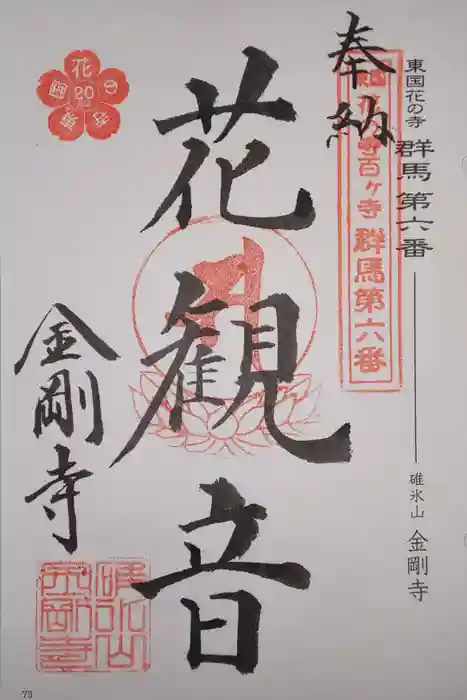 東国花の寺
群馬第六番
碓氷山 金剛寺
奉納
花の寺百ヶ寺 群馬第六番
花観音
花
20
金剛寺
碓氷山
金剛寺
73